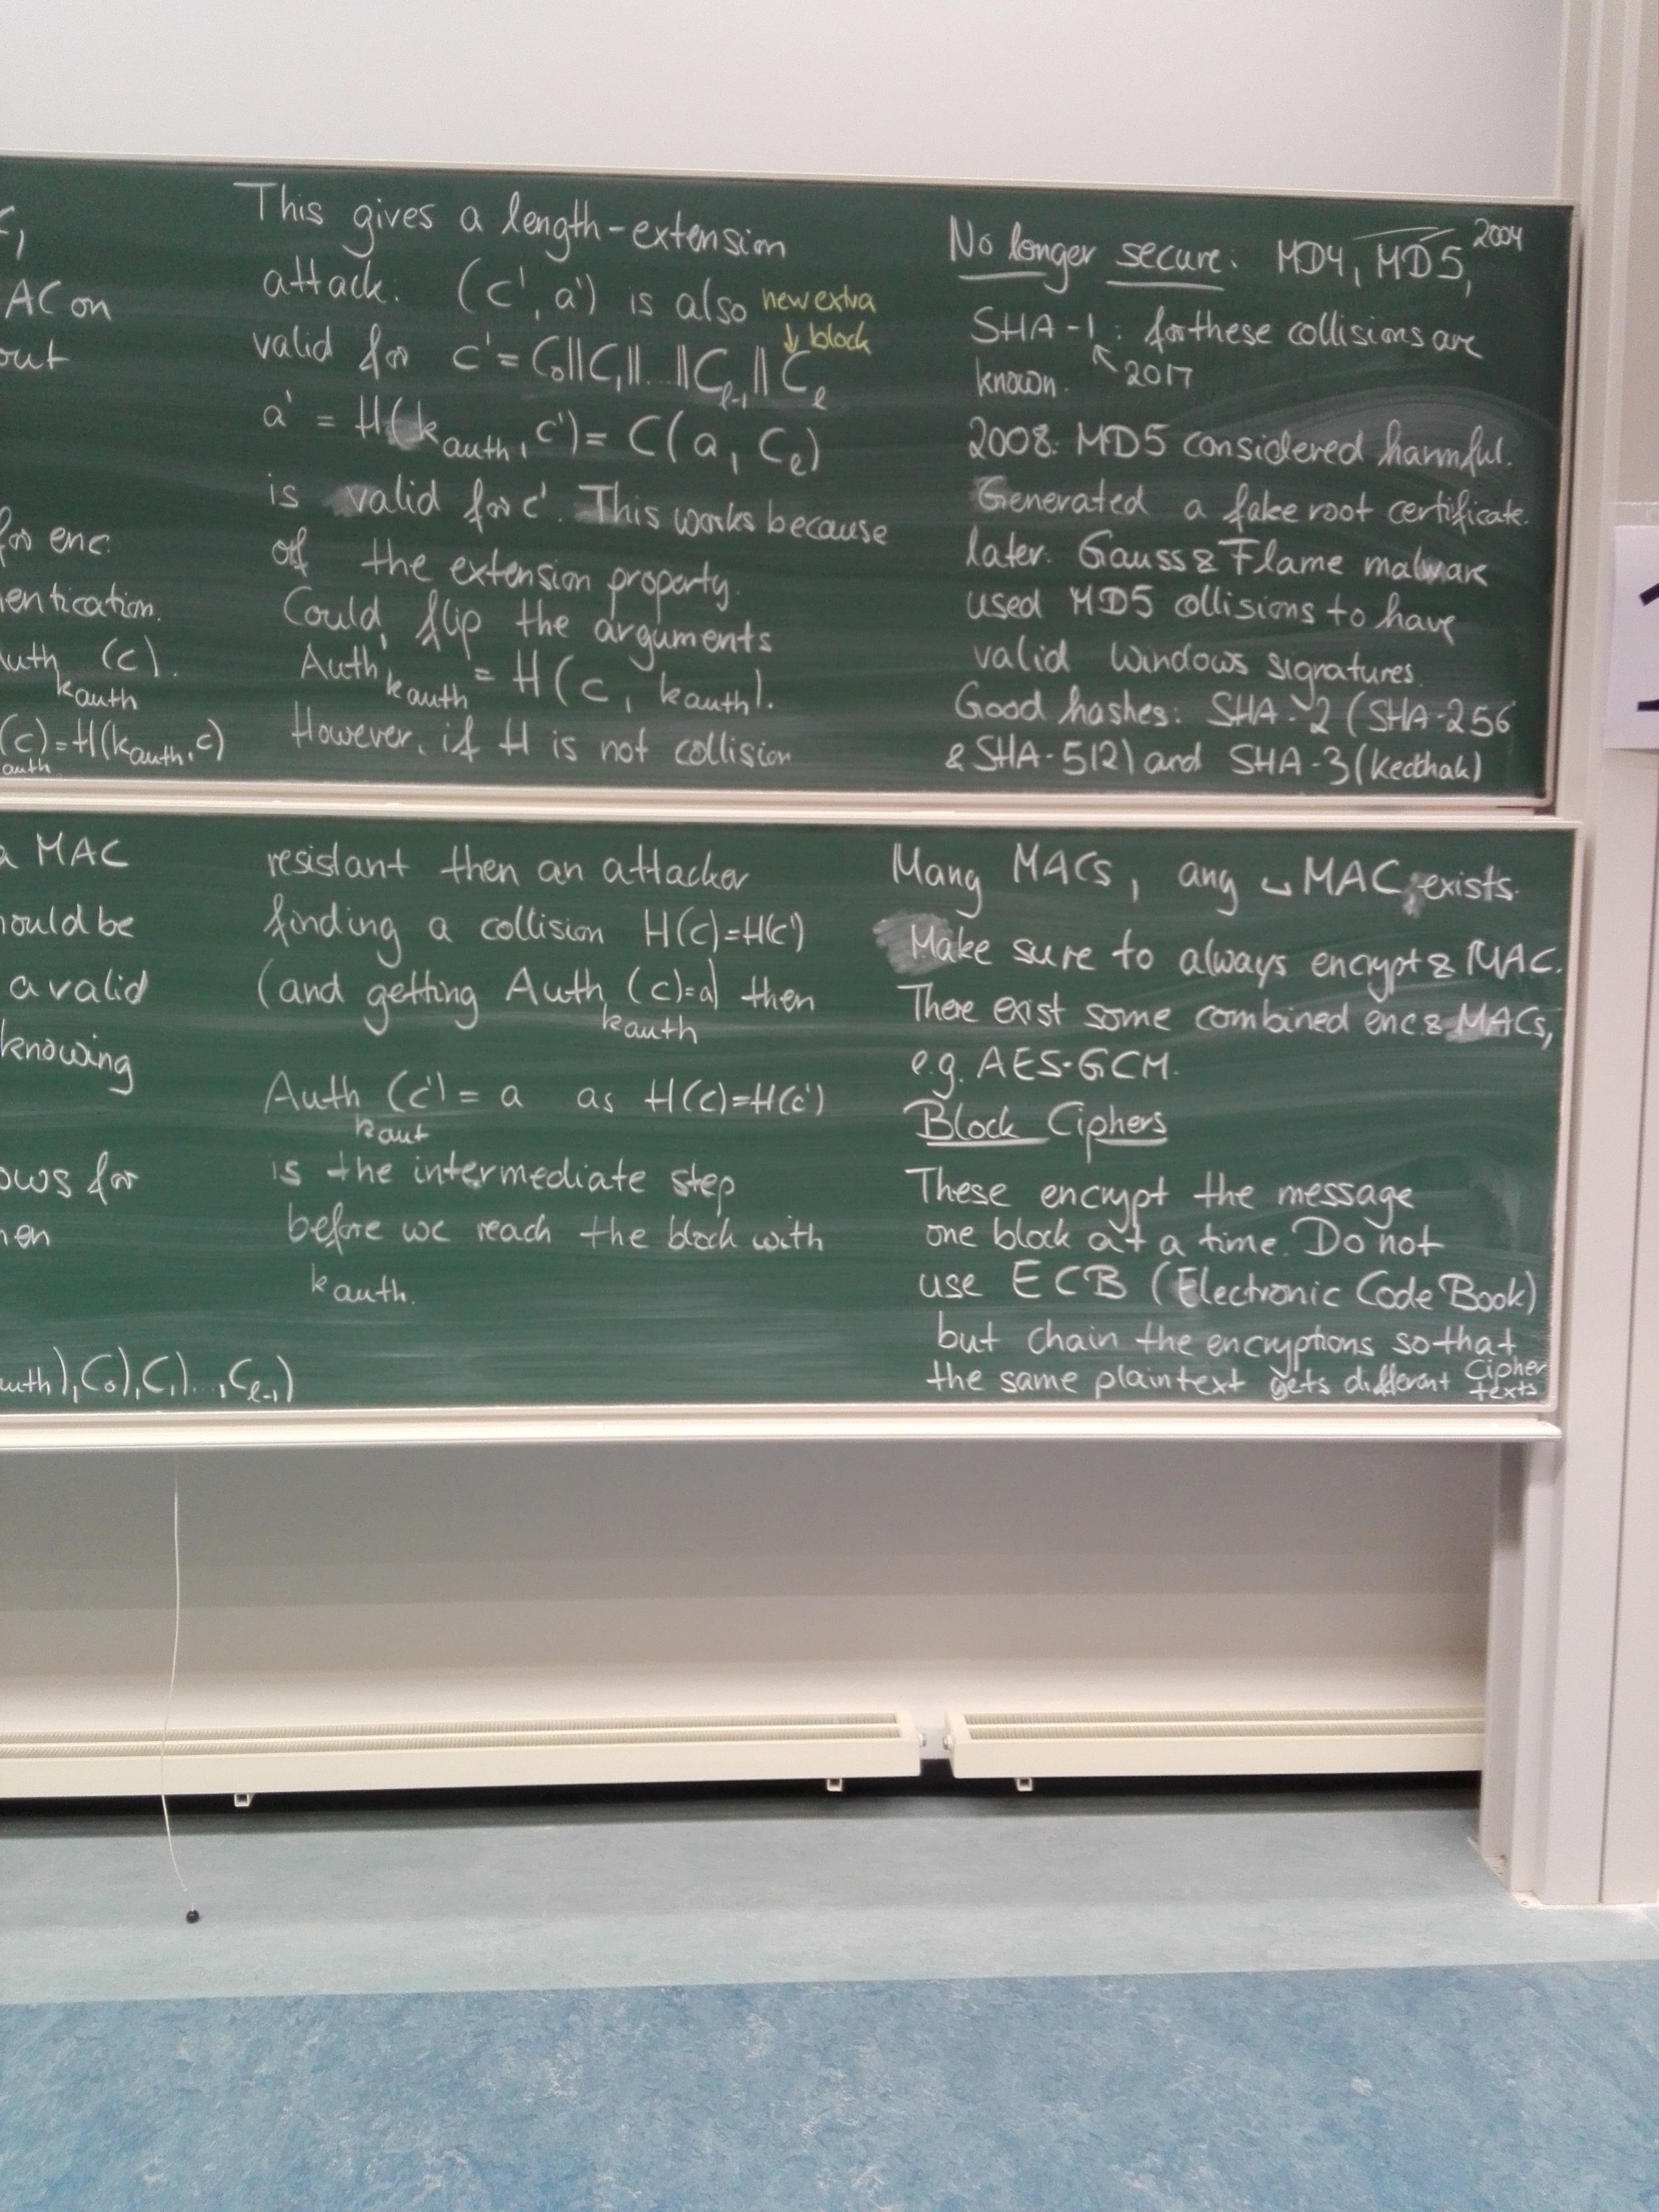 AC on
out
for enc.
entication.
auth k_auth (c).
(c)=H(k_auth, c)
auth
This gives a length-extension
attack. (c', a') is also new extra
↓ block
valid for c' = C_0||C_1||...||C_{ℓ-1}||C_ℓ
a' = H(k_auth, c') = C(a, C_ℓ)
is valid for c'. This works because
of the extension property.
Could flip the arguments
Auth_{k_auth} = H(c, k_auth).
However, if H is not collision
No longer secure: MD4, MD5, 2004
SHA-1: for these collisions are
known. ↖ 2017
2008: MD5 considered harmful.
Generated a fake root certificate.
later: Gauss & Flame malware
used MD5 collisions to have
valid Windows signatures.
Good hashes: SHA-2 (SHA-256
& SHA-512) and SHA-3 (Kecchak)
a MAC
hould be
a valid
knowing
ows for
auth), C_0), C_1)..., C_{ℓ-1})
resistant then an attacker
finding a collision H(c)=H(c')
(and getting Auth_{k_auth}(c)=a) then
Auth_{k_aut}(c') = a as H(c)=H(c')
is the intermediate step
before we reach the block with
k_auth.
Many MACs, any ⌴ MAC exists.
Make sure to always encrypt & MAC.
There exist some combined enc & MACs,
e.g. AES-GCM.
Block Ciphers
These encrypt the message
one block at a time. Do not
use ECB (Electronic Code Book)
but chain the encryptions so that
the same plaintext gets different cipher
texts